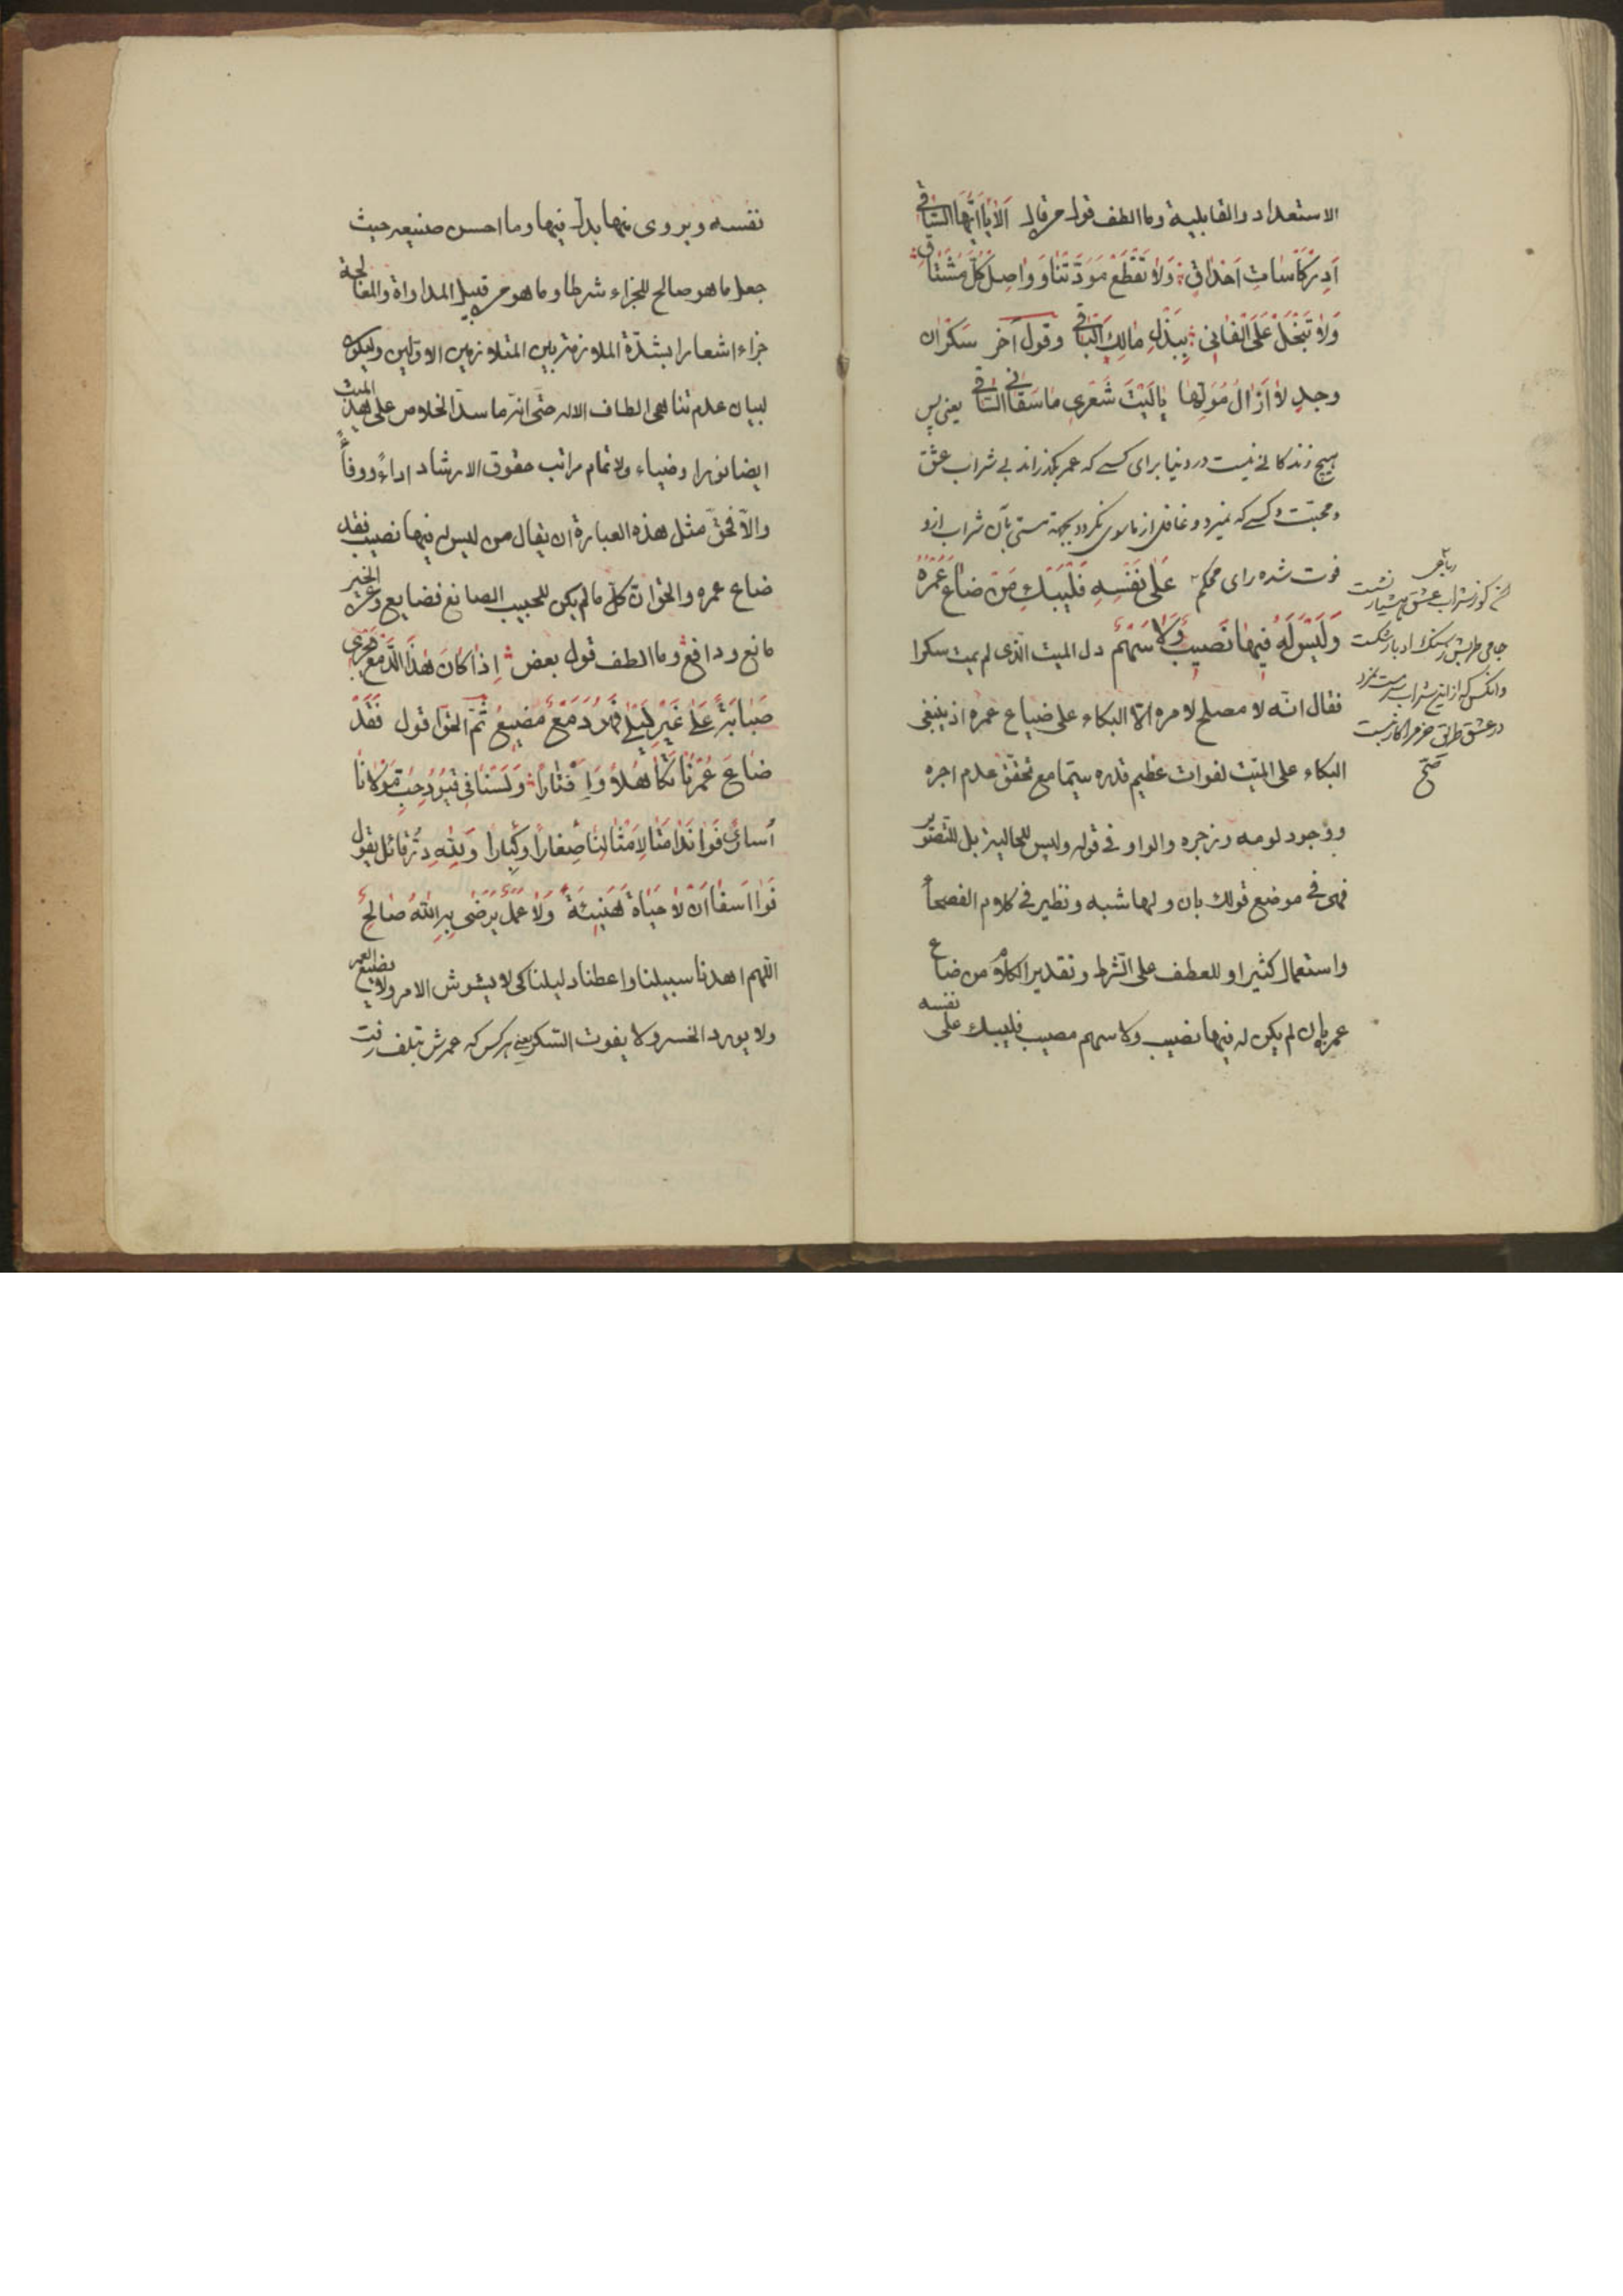 الاستعداد والقابلية وما الطف قول من قال اَلاٰ يٰا اَيُّهَا السّٰاقي
اَدِرْ كَأسٰاتِ اَحْدٰاقي وَلاٰ تَقْطَعْ مَوَدَّتَنٰا وَوٰاصِلْ كُلَّ مُشْتٰاقٍ
وَلاٰ تَبْخَلْ عَلَى الْفٰانِي بِبَذْلِ مٰالِكَ الْبٰاقي وقول آخر سكران
وجدٍ لاٰ اَزٰالُ مُوَلِّهاً يٰا لَيْتَ شَعْرِي مٰا سَقٰانِي السّٰاقي يعنى پس
هيچ زندكانى نيست در دنيا براى كسى كه عمر بگذراند بى شراب عشق
ومحبّت وكسى كه نميرد وغافل از ماسوى نكردد بجهة مستى بآن شراب ازو
فوت شده راى محكم عَلىٰ نَفْسِهِ فَلْيَبْكِ مَنْ ضٰاعَ عُمْرُهُ
وَلَيْسَ لَهُ فِيهٰا نَصِيبٌ وَلاٰ سَهْمُ دل الميت الّذى لم يمت سكرا
فقال انّه لا مصلح لامره الّا البكاء على ضياع عمره اذ ينبغى
البكاء على الميّت لفوات عظيم قدره سيّما مع تحقق عدم اجره
ووجود لومه وزجره والواو فى قوله وليس للحالية بل للتصوير
فهى فى موضع قولك بان ولها شبه ونظير فى كلام الفصحاء
واستعمال كثير او للعطف على الشرط وتقدير الكلام من ضاع
عمره بان لم يكن له فيها نصيب ولا سهم مصيب فليبك على نفسه
رباعى
كو از شراب عشق هشيار نشست
جامى طربش ز سنك ادبار شكست
وانكس كه ازين شراب سرمست نمرد
در عشق طريق حزم را كار نبست
صح
نفسه ويروى منها بدل فيها وما احسن صنيعه حيث
جعل ما هو صالح للجزاء شرطا وما هو من قبيل المداواة والمعالجة
جزاء اشعارا بشدّة الملازمة بين المتلازمين الاوّلين وليكون
لبيان عدم تناهى الطاف الاله حتّى انّه ما سدّ الخلاص على هذا الميت
ايضا نورا وضياء ولاتمام مراتب حقوق الارشاد اداءً ووفاءً
والّا فحقّ مثل هذه العبارة ان يقال من ليس له فيها نصيب فقد
ضاع عمره والحق ان كلّ ما لم يكن للحبيب الصانع فضايع وعن الخير
مانع ودافع وما الطف قول بعض اِذٰا كٰانَ هٰذَا الدَّمْعُ يَجْرِي
صَبٰابَةً عَلىٰ غَيْرِ لَيْلىٰ فَهُوَ دَمْعٌ مُضَيَّعُ ثمّ الحقّ قول فَقَدْ
ضٰاعَ عُمْرُنٰا تَكٰاهُلاً وَاِفْتٰاراً وَلَسْنٰا في قُيُودِ حُبِّ مَوْلاٰنٰا
اُسارىٰ فَوٰا نَدٰامَتٰا لِاَمْثٰالِنٰا صِغٰاراً وَكِبٰاراً وَلِلّٰهِ دَرُّ قائل يقول
فَوٰا اَسَفٰا اَنْ لاٰ حَيٰاةَ هَنِيئَةً وَلاٰ عَمَلٌ يَرْضىٰ بِهِ اللّٰهُ صٰالِحُ
اللّهم اهدنا سبيلنا واعطنا دليلنا كى لا يشوش الامر ولا يضيع العمر
ولا يورد الخسر ولا يفوت السكر يعنى هركس كه عمرش بتلف رفت